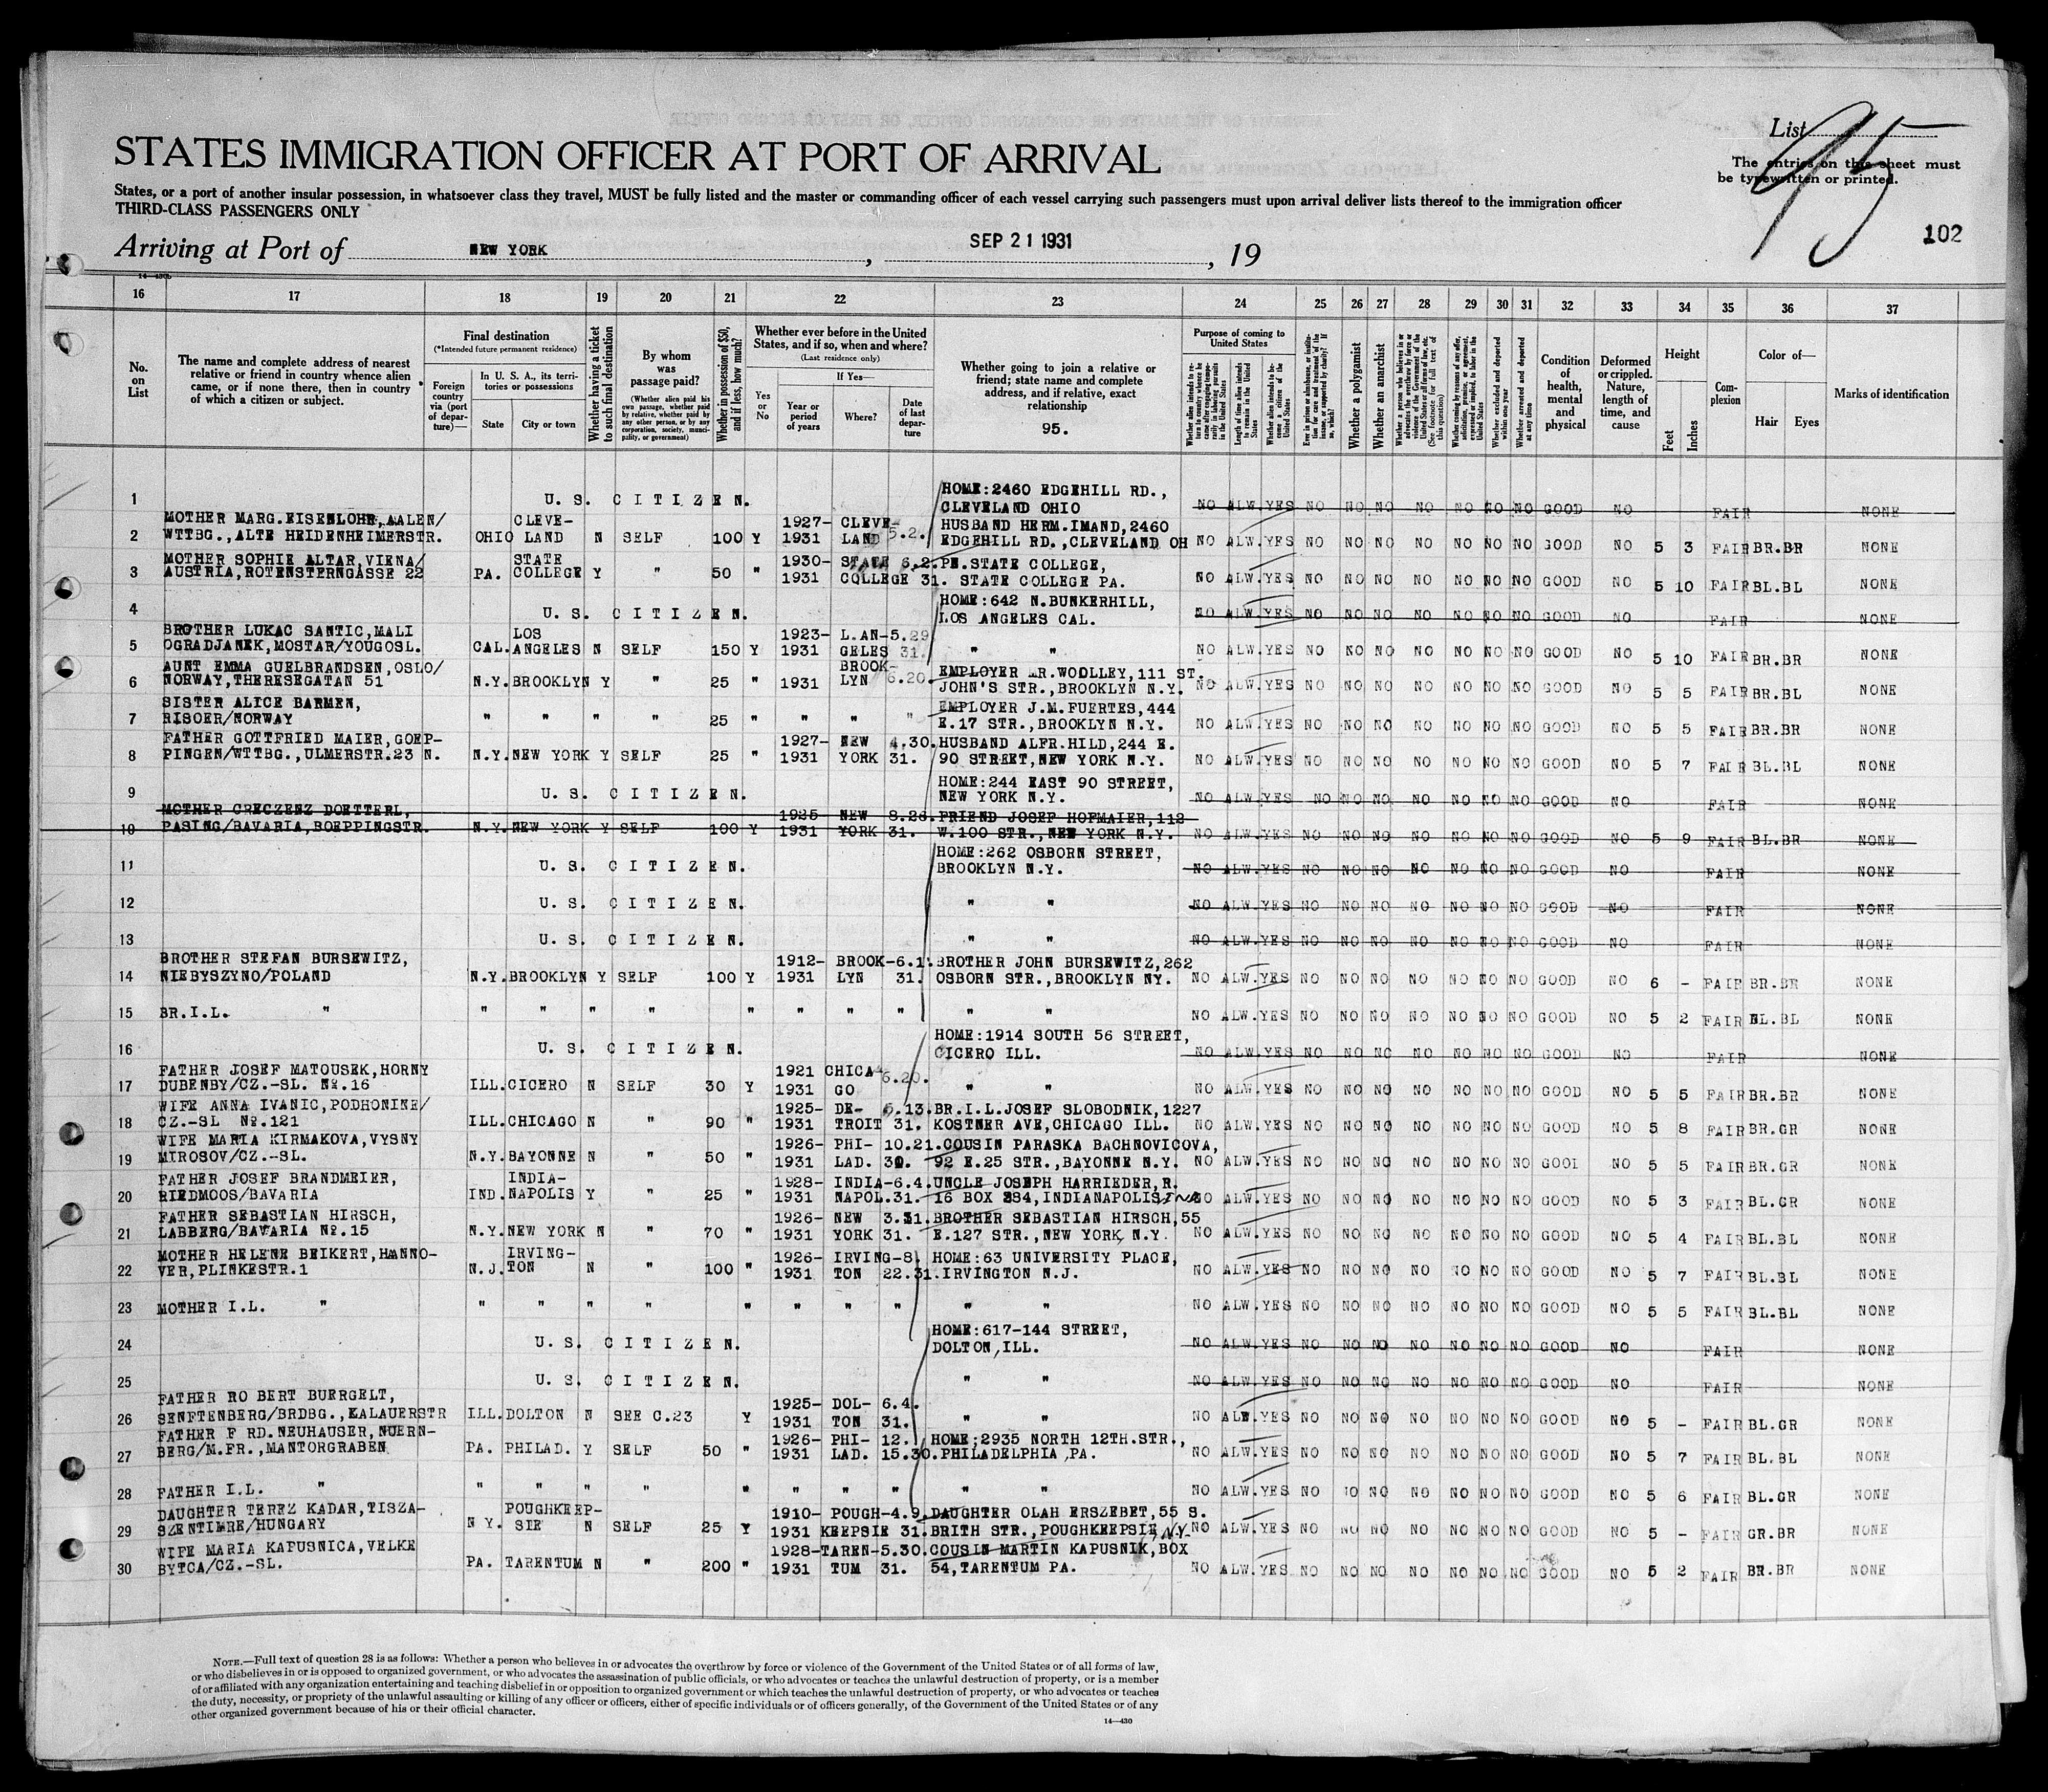 List 95
STATES IMMIGRATION OFFICER AT PORT OF ARRIVAL
The entries on this sheet must
be typewritten or printed.
States, or a port of another insular possession, in whatsoever class they travel, MUST be fully listed and the master or commanding officer of each vessel carrying such passengers must upon arrival deliver lists thereof to the immigration officer
THIRD-CLASS PASSENGERS ONLY
102
Arriving at Port of NEW YORK, SEP 21 1931, 19
14—430b
16 17 18 19 20 21 22 23 24 25 26 27 28 29 30 31 32 33 34 35 36 37
No. on List
The name and complete address of nearest relative or friend in country whence alien came, or if none there, then in country of which a citizen or subject.
Final destination
(*Intended future permanent residence)
Foreign country via (port of departure)—
In U. S. A., its territories or possessions
State
City or town
Whether having a ticket to such final destination
By whom was passage paid?
(Whether alien paid his own passage, whether paid by relative, whether paid by any other person, or by any corporation, society, municipality, or government)
Whether in possession of $50, and if less, how much?
Whether ever before in the United States, and if so, when and where?
(Last residence only)
Yes or No
If Yes—
Year or period of years
Where?
Date of last departure
Whether going to join a relative or friend; state name and complete address, and if relative, exact relationship
95.
Purpose of coming to United States
Whether alien intends to return to country whence he came after engaging temporarily in laboring pursuits in the United States
Length of time alien intends to remain in the United States
Whether alien intends to become a citizen of the United States
Ever in prison or almshouse, or institution for care and treatment of the insane, or supported by charity? If so, which?
Whether a polygamist
Whether an anarchist
Whether a person who believes in or advocates the overthrow by force or violence of the Government of the United States or all forms of law, etc. (See footnote for full text of this question)
Whether coming by reasons of any offer, solicitation, promise, or agreement, expressed or implied, to labor in the United States
Whether excluded and deported within one year
Whether arrested and deported at any time
Condition of health, mental and physical
Deformed or crippled. Nature, length of time, and cause
Height
Feet
Inches
Complexion
Color of—
Hair
Eyes
Marks of identification
1 U. S. CITIZEN. HOME:2460 EDGEHILL RD., CLEVELAND OHIO NO ALW. YES NO NO NO NO NO NO NO GOOD NO FAIR NONE
2 MOTHER MARG.EISENLOHR,AALEN/ WTTBG.,ALTE HEIDENHEIMERSTR. OHIO CLEVE-LAND N SELF 100 Y 1927-1931 CLEVE-LAND 5.2. HUSBAND HERM.IMAND,2460 EDGEHILL RD.,CLEVELAND OH NO ALW. YES NO NO NO NO NO NO NO GOOD NO 5 3 FAIR BR.BR NONE
3 MOTHER SOPHIE ALTAR,VIENA/ AUSTRIA,ROTENSTERNGASSE 22 PA. STATE COLLEGE Y " 50 " 1930-1931 STATE COLLEGE 6.2. 31. PE.STATE COLLEGE, STATE COLLEGE PA. NO ALW. YES NO NO NO NO NO NO NO GOOD NO 5 10 FAIR BL.BL NONE
4 U. S. CITIZEN. HOME:642 N.BUNKERHILL, LOS ANGELES CAL. NO ALW. YES NO NO NO NO NO NO NO GOOD NO FAIR NONE
5 BROTHER LUKAC SANTIC,MALI OGRADJANEK,MOSTAR/YOUGOSL. CAL. LOS ANGELES N SELF 150 Y 1923-1931 L.AN-GELES 5.29. 31. " " NO ALW. YES NO NO NO NO NO NO NO GOOD NO 5 10 FAIR BR.BR NONE
6 AUNT EMMA GUELBRANDSEN,OSLO/ NORWAY,THERESEGATAN 51 N.Y. BROOKLYN Y " 25 " 1931 BROOK-LYN 6.20. EMPLOYER MR.WOOLLEY,111 ST. JOHN'S STR.,BROOKLYN N.Y. NO ALW. YES NO NO NO NO NO NO NO GOOD NO 5 5 FAIR BR.BL NONE
7 SISTER ALICE BARMEN, RISOER/NORWAY " " " " 25 " " " " EMPLOYER J.M.FUERTES,444 E.17 STR.,BROOKLYN N.Y. NO ALW. YES NO NO NO NO NO NO NO GOOD NO 5 5 FAIR BR.BR NONE
8 FATHER GOTTFRIED MAIER,GOEP-PINGEN/WTTBG.,ULMERSTR.23 N. N.Y. NEW YORK Y SELF 25 " 1927-1931 NEW YORK 4.30. 31. HUSBAND ALFR.HILD,244 E. 90 STREET,NEW YORK N.Y. NO ALW. YES NO NO NO NO NO NO NO GOOD NO 5 7 FAIR BL.BL NONE
9 U. S. CITIZEN. HOME:244 EAST 90 STREET, NEW YORK N.Y. NO ALW. YES NO NO NO NO NO NO NO GOOD NO FAIR NONE
10 MOTHER CRECZENZ DOETTERL, PASING/BAVARIA,BOEPPINGSTR. N.Y. NEW YORK Y SELF 100 Y 1925-1931 NEW YORK 8.26. 31. FRIEND JOSEF HOFMAIER,112 W.100 STR.,NEW YORK N.Y. NO ALW. YES NO NO NO NO NO NO NO GOOD NO 5 9 FAIR BL.BR NONE
11 U. S. CITIZEN. HOME:262 OSBORN STREET, BROOKLYN N.Y. NO ALW. YES NO NO NO NO NO NO NO GOOD NO FAIR NONE
12 U. S. CITIZEN. " " NO ALW. YES NO NO NO NO NO NO NO GOOD NO FAIR NONE
13 U. S. CITIZEN. " " NO ALW. YES NO NO NO NO NO NO NO GOOD NO FAIR NONE
14 BROTHER STEFAN BURSEWITZ, NIEBYSZYNO/POLAND N.Y. BROOKLYN Y SELF 100 Y 1912-1931 BROOK-LYN 6.1. 31. BROTHER JOHN BURSEWITZ,262 OSBORN STR.,BROOKLYN NY. NO ALW. YES NO NO NO NO NO NO NO GOOD NO 6 - FAIR BR.BR NONE
15 BR.I.L. " " " " " " " " " " " NO ALW. YES NO NO NO NO NO NO NO GOOD NO 5 2 FAIR BL.BL NONE
16 U. S. CITIZEN. HOME:1914 SOUTH 56 STREET, CICERO ILL. NO ALW. YES NO NO NO NO NO NO NO GOOD NO FAIR NONE
17 FATHER JOSEF MATOUSEK,HORNY DUBENBY/CZ.-SL. No.16 ILL. CICERO N SELF 30 Y 1921 1931 CHICA-GO 6.20. " " NO ALW. YES NO NO NO NO NO NO NO GOOD NO 5 5 FAIR BR.BR NONE
18 WIFE ANNA IVANIC,PODHONINE/ CZ.-SL No.121 ILL. CHICAGO N " 90 " 1925-1931 DE-TROIT 5.13. 31. BR.I.L.JOSEF SLOBODNIK,1227 KOSTNER AVE,CHICAGO ILL. NO ALW. YES NO NO NO NO NO NO NO GOOD NO 5 8 FAIR BR.GR NONE
19 WIFE MARIA KIRMAKOVA,VYSNY MIROSOV/CZ.-SL. N.Y. BAYONNE N " 50 " 1926-1931 PHI-LAD. 10.21. 30. COUSIN PARASKA BACHNOVICOVA, 92 E.25 STR.,BAYONNE N.Y. NO ALW. YES NO NO NO NO NO NO NO GOOD NO 5 5 FAIR BR.GR NONE
20 FATHER JOSEF BRANDMEIER, RIEDMOOS/BAVARIA IND. INDIA-NAPOLIS Y " 25 " 1928-1931 INDIA-NAPOL. 6.4. 31. UNCLE JOSEPH HARRIEDER,R. 16 BOX 284,INDIANAPOLIS Ind NO ALW. YES NO NO NO NO NO NO NO GOOD NO 5 3 FAIR BL.GR NONE
21 FATHER SEBASTIAN HIRSCH, LABBERG/BAVARIA No.15 N.Y. NEW YORK N " 70 " 1926-1931 NEW YORK 3.31. 31. BROTHER SEBASTIAN HIRSCH,55 E.127 STR.,NEW YORK N.Y. NO ALW. YES NO NO NO NO NO NO NO GOOD NO 5 4 FAIR BL.BL NONE
22 MOTHER HELENE BEIKERT,HANNO-VER,PLINKESTR.1 N.J. IRVING-TON N " 100 " 1926-1931 IRVING-TON 8. 22.31. HOME:63 UNIVERSITY PLACE, IRVINGTON N.J. NO ALW. YES NO NO NO NO NO NO NO GOOD NO 5 7 FAIR BL.BL NONE
23 MOTHER I.L. " " " " " " " " " " " NO ALW. YES NO NO NO NO NO NO NO GOOD NO 5 5 FAIR BL.BL NONE
24 U. S. CITIZEN. HOME:617-144 STREET, DOLTON,ILL. NO ALW. YES NO NO NO NO NO NO NO GOOD NO FAIR NONE
25 U. S. CITIZEN. " " NO ALW. YES NO NO NO NO NO NO NO GOOD NO FAIR NONE
26 FATHER RO BERT BUERGELT, SENFTENBERG/BRDBG.,KALAUERSTR ILL. DOLTON N SEE C.23 Y 1925-1931 DOL-TON 6.4. 31. " " NO ALW. YES NO NO NO NO NO NO NO GOOD NO 5 - FAIR BL.GR NONE
27 FATHER F RD.NEUHAUSER,NUERN-BERG/M.FR.,MANTORGRABEN PA. PHILAD. Y SELF 50 " 1926-1931 PHI-LAD. 12. 15.30. HOME;2935 NORTH 12TH.STR., PHILADELPHIA,PA. NO ALW. YES NO NO NO NO NO NO NO GOOD NO 5 7 FAIR BL.BL NONE
28 FATHER I.L. " " " " " " " " " " " NO ALW. YES NO NO NO NO NO NO NO GOOD NO 5 6 FAIR BL.GR NONE
29 DAUGHTER TEREZ KADAR,TISZA-SZENTIMRE/HUNGARY N Y. POUGHKEEP-SIE N SELF 25 Y 1910-1931 POUGH-KEEPSIE 4.9. 31. DAUGHTER OLAH ERSZEBET,55 S. BRITH STR.,POUGHKEEPSIE, N.Y. NO ALW. YES NO NO NO NO NO NO NO GOOD NO 5 - FAIR GR.BR NONE
30 WIFE MARIA KAPUSNICA,VELKE BYTCA/CZ.-SL. PA. TARENTUM N " 200 " 1928-1931 TAREN-TUM 5.30. 31. COUSIN MARTIN KAPUSNIK,BOX 54,TARENTUM PA. NO ALW. YES NO NO NO NO NO NO NO GOOD NO 5 2 FAIR BR.BR NONE
NOTE.—Full text of question 28 is as follows: Whether a person who believes in or advocates the overthrow by force or violence of the Government of the United States or of all forms of law,
or who disbelieves in or is opposed to organized government, or who advocates the assassination of public officials, or who advocates or teaches the unlawful destruction of property, or is a member
of or affiliated with any organization entertaining and teaching disbelief in or opposition to organized government or which teaches the unlawful destruction of property, or who advocates or teaches
the duty, necessity, or propriety of the unlawful assaulting or killing of any officer or officers, either of specific individuals or of officers generally, of the Government of the United States or of any
other organized government because of his or their official character.
14—430